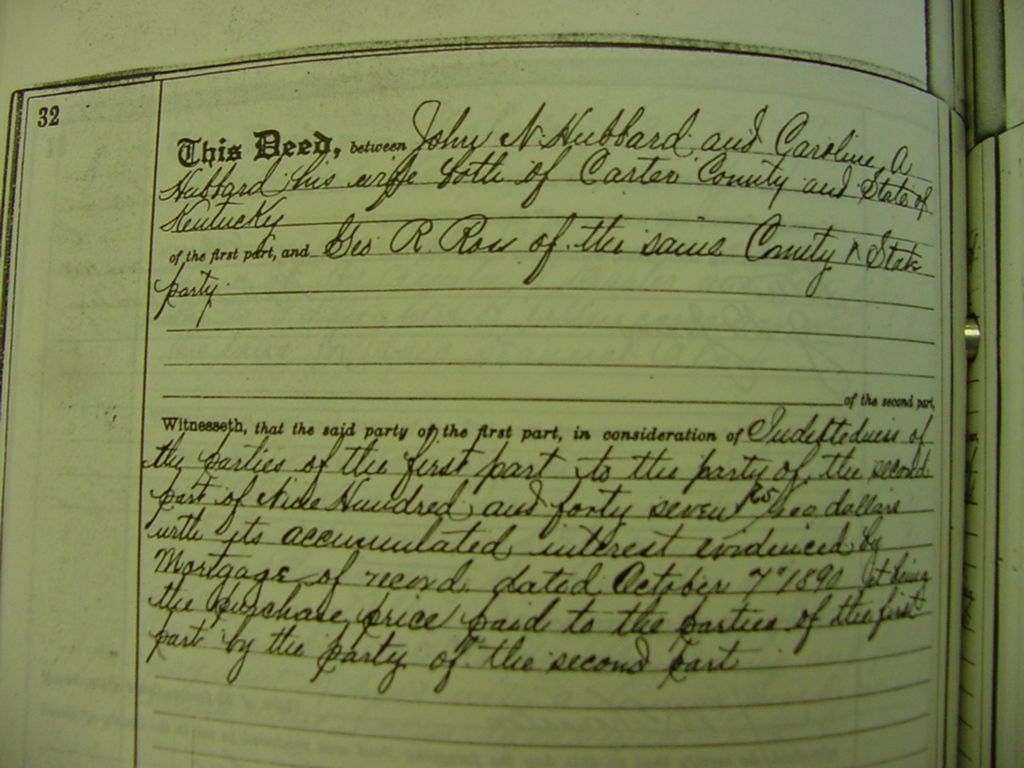 32
This Deed, between John N. Hubbard and Caroline A
Hubbard his wife both of Carter County and State of
Kentucky
of the first part, and Geo R. Ross of the same County & State
party
of the second part,
Witnesseth, that the said party of the first part, in consideration of Indebtedness of
the parties of the first part to the party of the second
part of Nine Hundred and forty seven 25/100 dollars
with its accumulated interest evidenced by
Mortgage of record dated October 7" 1890 it being
the purchase price paid to the parties of the first
part by the party of the second part